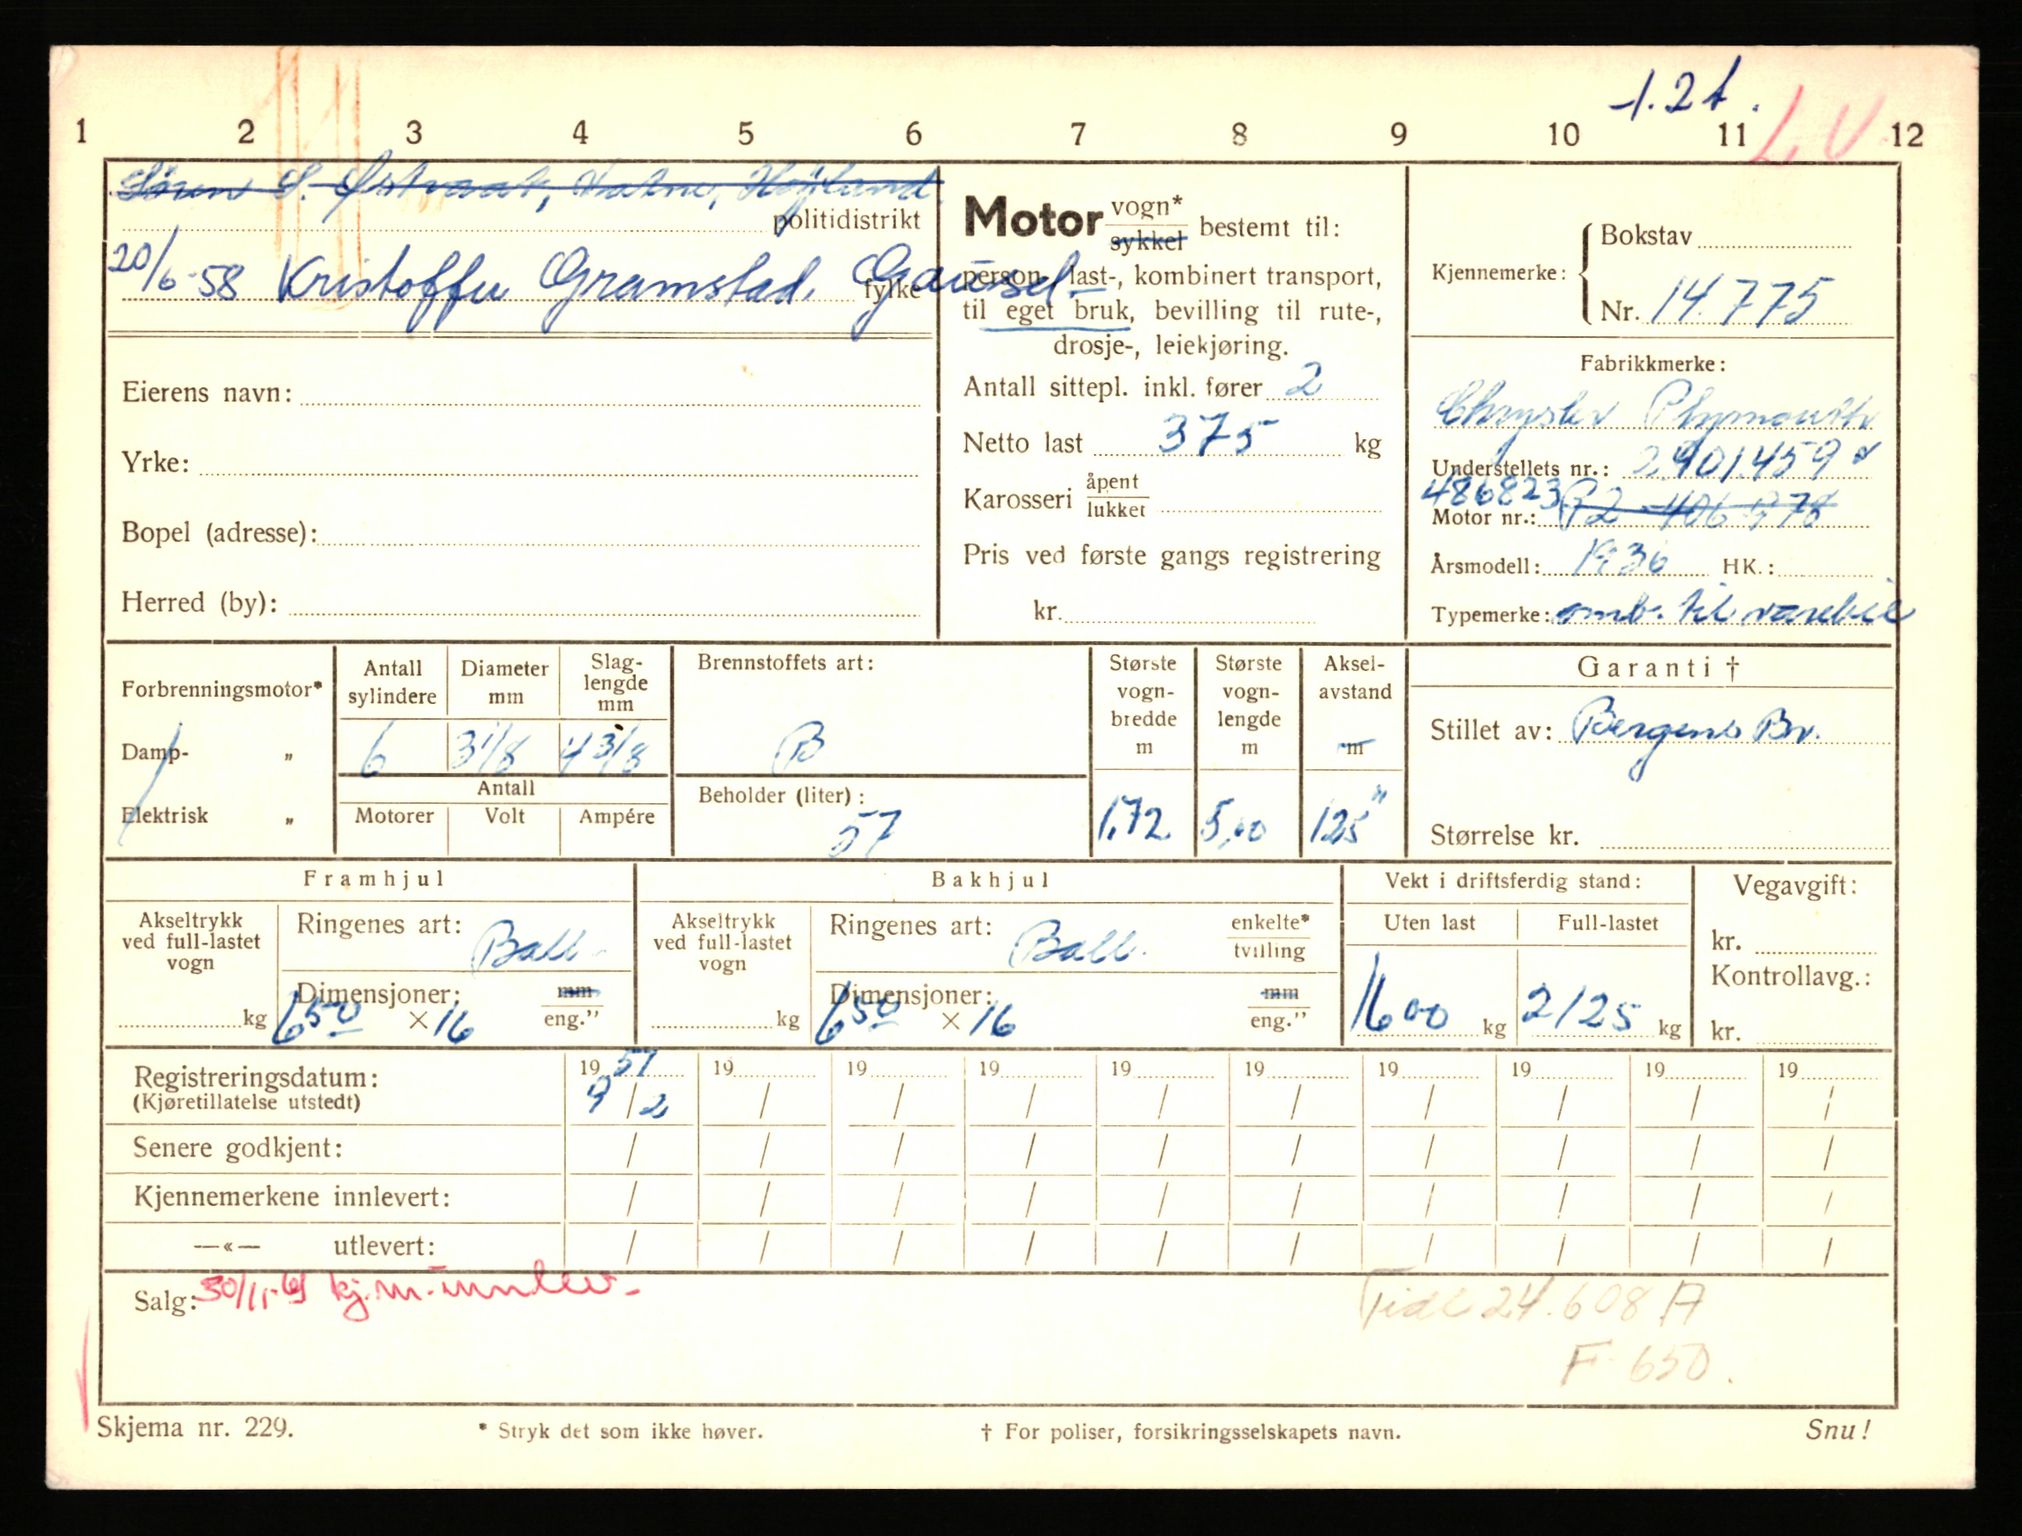 -1.2t.
L V
1 2 3 4 5 6 7 8 9 10 11 12
Søren S. Østraat, Vatne, Høyland
politidistrikt
20/6-58 Kristoffer Gramstad, Gausel
fylke
Eierens navn:
Yrke:
Bopel (adresse):
Herred (by):
Motor vogn* sykkel bestemt til:
person-, last-, kombinert transport,
til eget bruk, bevilling til rute-,
drosje-, leiekjøring.
Antall sittepl. inkl. fører 2
Netto last 375 kg
Karosseri åpent lukket
Pris ved første gangs registrering
kr.
Kjennemerke: Bokstav
Nr. 14.775
Fabrikkmerke:
Chrysler Plymouth
Understellets nr.: 2.901.459
486823
Motor nr.: P2
Årsmodell: 1936 HK.:
Typemerke: omb. til varebil
Forbrenningsmotor*
Damp- „
Elektrisk „
Antall sylindere 6
Diameter mm 3 1/8
Slag-lengde mm 4 3/8
Antall
Motorer Volt Ampére
Brennstoffets art:
B
Beholder (liter):
57
Største vogn-bredde m 1,72
Største vogn-lengde m 5,00
Aksel-avstand m 125"
Garanti †
Stillet av: Bergens Br.
Størrelse kr.
Framhjul
Akseltrykk ved full-lastet vogn
kg
Ringenes art: Ball.
Dimensjoner: mm eng."
650 × 16
Bakhjul
Akseltrykk ved full-lastet vogn
kg
Ringenes art: Ball. enkelte* tvilling
Dimensjoner: mm eng."
650 × 16
Vekt i driftsferdig stand:
Uten last Full-lastet
1600 kg 2125 kg
Vegavgift:
kr.
Kontrollavg.:
kr.
Registreringsdatum: 19 57 19 19 19 19 19 19 19 19 19
(Kjøretillatelse utstedt) 9/2 / / / / / / / / /
Senere godkjent: / / / / / / / / / /
Kjennemerkene innlevert: / / / / / / / / / /
—«— utlevert: / / / / / / / / / /
Salg: 30/11-61 kj.m. innlev.
Tidl 24.608 A
F 650.
Skjema nr. 229.
* Stryk det som ikke høver.
† For poliser, forsikringsselskapets navn.
Snu!